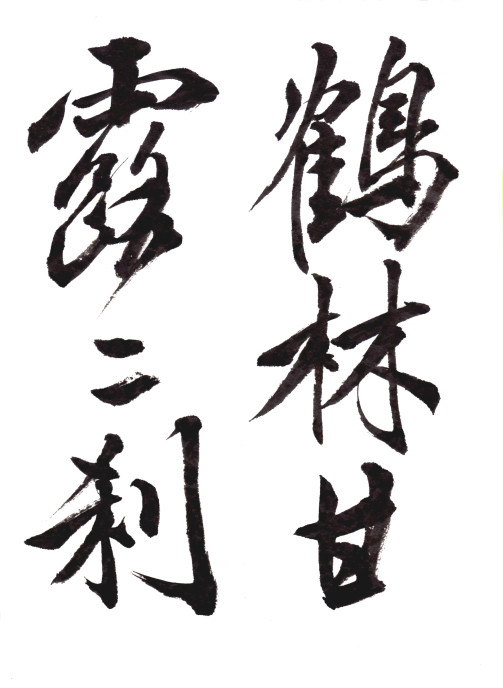 鶴林甘
露二刹